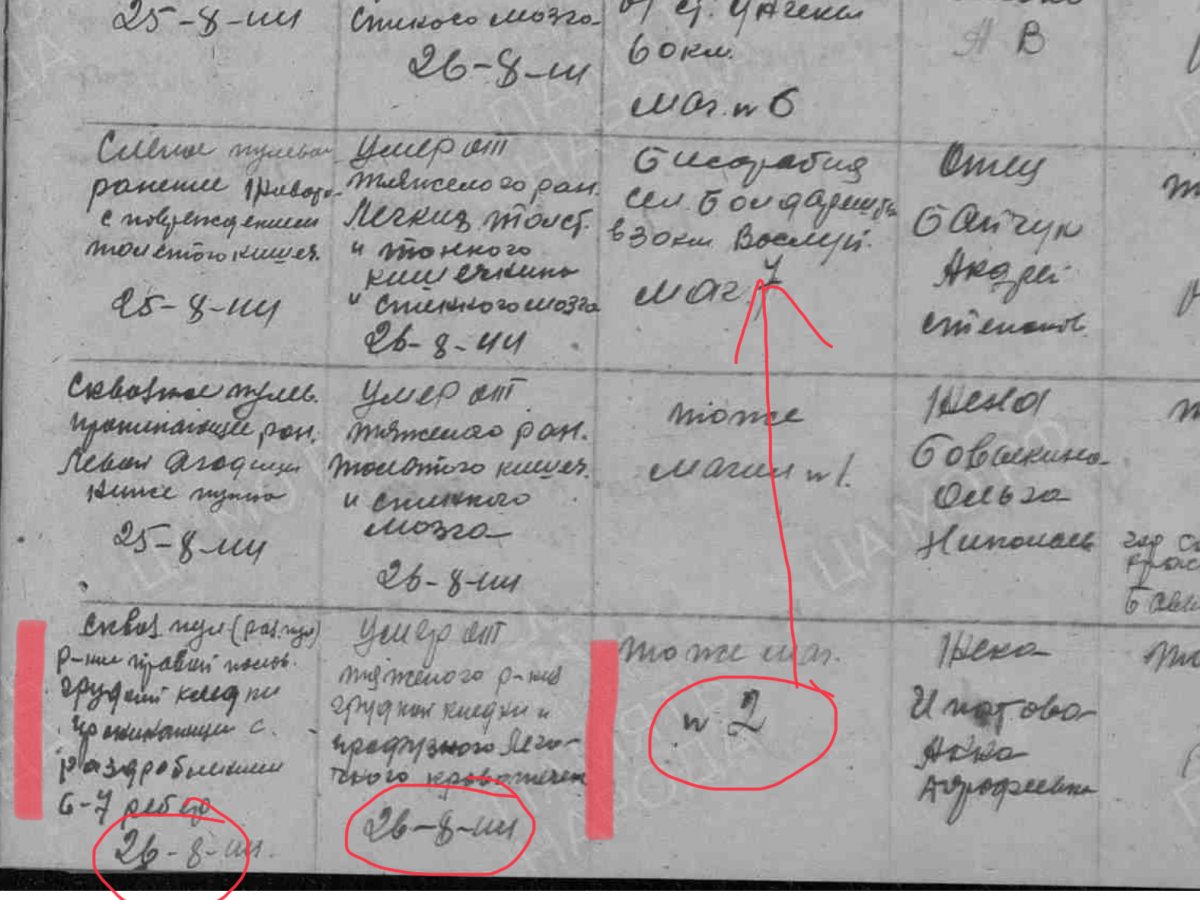 25-8-44
спинного мозга
26-8-44
6 окм.
маг. № 6
А В
Слепое пулевое
ранение живота
с повреждением
толстого кишеч.
25-8-44
Умер от
тяжелого ран.
Легких толст.
и тонкого
кишечника
и спинного мозга
26-8-44
Бисарабия
сел. Бондарешты
в 3 окм Васлуй.
маг. 7
Отец
Байчук
Андрей
степанов.
Сквозное пулев.
проникающее ран.
Левой ягодицы
25-8-44
Умер от
тяжелого ран.
толстого кишеч.
и спинного
мозга
26-8-44
тоже
магил № 1.
Жена
Бовыкина
Ольга
Николаев
гор
Сквоз пул (раз. пул)
р-ние правой полов.
грудной клетки
проникающее с
раздроблением
6-7 ребер
26-8-44.
Умер от
тяжелого р-ния
грудной клетки и
профузного Лего-
чного кровотечен
26-8-44
тоже маг.
№ 2
Жена
Ипатова
Анна
Дорофеевна
ЦАМО РФ